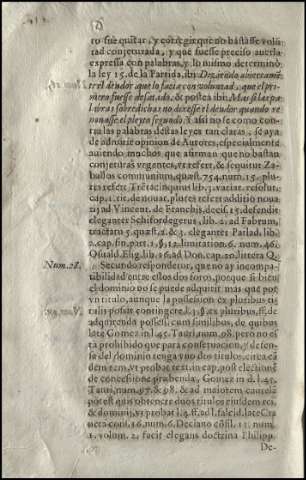 ro fue quitar, y corregir que no bastasse volũ-
tad conjeturada, y que fuesse preciso averla
expressa con palabras, y lo mismo determinò
la ley 15. de la Partida, ibi: Deziendo abiertamẽ-
te el deudor que lo fazia con voluntad, que el pri-
mero fuesse desatado, & postea ibi: Mas si las pa-
labras sobredichas no dixesse el deudor quando re-
nouasse el pleyto segundo. Y assi no se como con-
tra las palabras destas leyes tan claras, se aya
de admitir opinion de Autores, especialmente
auiendo muchos que afirman que no bastan
conjeturas vrgentes, vt refert, & sequitur Ze-
ballos communium, quæst. 754. num. 15. plu-
res refert Trẽtacinquius lib. 3. variar. resolut.
cap. 1. tit. de nouat. plures refert additio noua
ad Vincent. de Franchis, decis. 15. defendit
eleganter Schifordegerus, lib. 2. ad Fabrum,
tractatu 5. quæst. 2. & 3. eleganter Parlad. lib.
2. cap. fin. part. 1. §. 12. limitation. 6. num. 46.
Osuald. Elig. lib. 16. ad Don. cap. 20. littera Q.
Num. 28.
Secundo respondetur, que no ay incompa-
tibilidad entre estos dos foros, porque si bien
el dominio no se puede adquirir mas que por
vn titulo, aunque la possession ex pluribus ti-
tulis possit contingere, l. 3. §. ex pluribus, ff. de
adquirenda possess. cum similibus, de quibus
late Gomez in l. 45. Tauri, num. 98. pero no es-
tà prohibido que para conseruacion, y defen-
sa del dominio tenga vno dos titulos, circa eã-
dem rem, vt probat text. in cap. post electione
de concessione præbendæ, Gomez in d. l. 45.
Tauri, num. 97. & 98. & ad maiorem cautelã
potest quis obtinere duos titulos eiusdem rei,
& dominij, vt probat l. 4. ff. ad l. falcid. late Cra-
ueta consil. 16. num. 6. Deciano cõsil. 12. num.
1. volum. 2. facit elegans doctrina Philipp.
De-